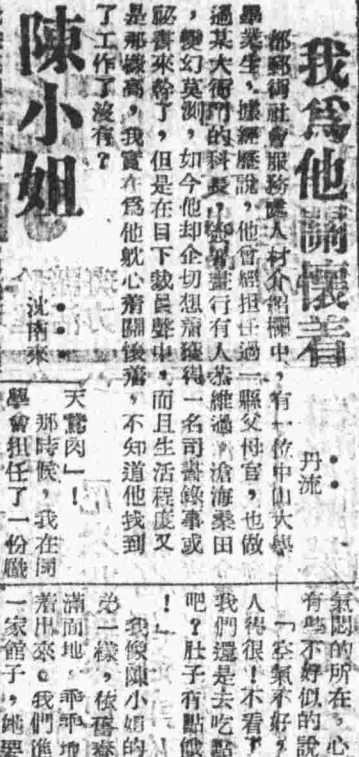 我爲他關懷着
丹流
都郵街社會服務處人材介紹欄中,有一位中山大學
畢業生,據經歷說,他曾經担任過一縣父母官,也做
過某大衙門的科長,畫行有人恭維過,滄海桑田
,變幻莫測,如今他却企切想着獲得一名司書錄事或
祕書來幹了,但是在目下裁員聲中,而且生活程度又
是那樣高,我實在爲他躭心着關懷着,不知道他找到
了工作了沒有?
陳小姐
沈南來
天鵞肉」!
那時候,我在同
學會担任了一份職
氣悶的所在,心
有些不好似的說
「空氣不好,
人得很!不看了
我們還是去吃點
吧?肚子有點餓
!」
我像陳小姐的
弟一樣,依舊春
滿面地,乖乖地
着出來。我們進
一家館子,她要